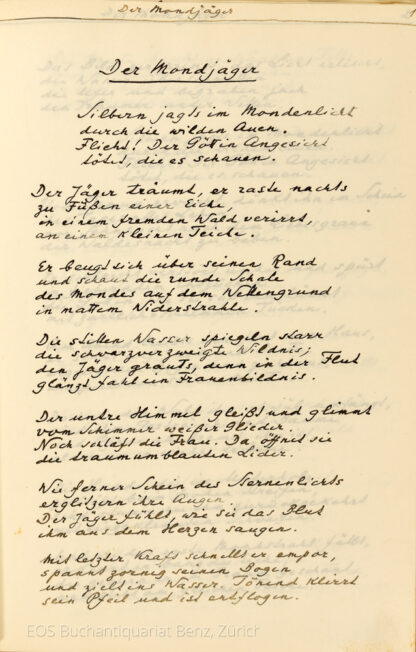 Der Mondjäger
Der Mondjäger
Silbern jagts im Mondenlicht
durch die wilden Auen.
Flieht! Der Göttin Angesicht
tötet, die es schauen.
Der Jäger träumt, er raste nachts
zu Füßen einer Eiche,
in einem fremden Wald verirrt,
an einem kleinen Teiche.
Er beugt sich über seinen Rand
und schaut die runde Schale
des Mondes auf dem Wellengrund
in mattem Widerstrahle.
Die stillen Wasser spiegeln starr
die schwarzverzweigte Wildnis;
den Jäger grauts, denn in der Flut
glänzt fahl ein Frauenbildnis.
Der untre Himmel gleißt und glimmt
vom Schimmer weißer Glieder.
Noch schläft die Frau. Da öffnet sie
die traumumblauten Lider.
Wie ferner Schein des Sternenlichts
erglitzern ihre Augen.
Der Jäger fühlt, wie sie das Blut
ihm aus dem Herzen saugen.
Mit letzter Kraft schnellt er empor,
spannt zornig seinen Bogen
und zielt ins Wasser. Tönend klirrt
sein Pfeil und ist entflogen.
EOS Buchantiquariat Benz, Zürich